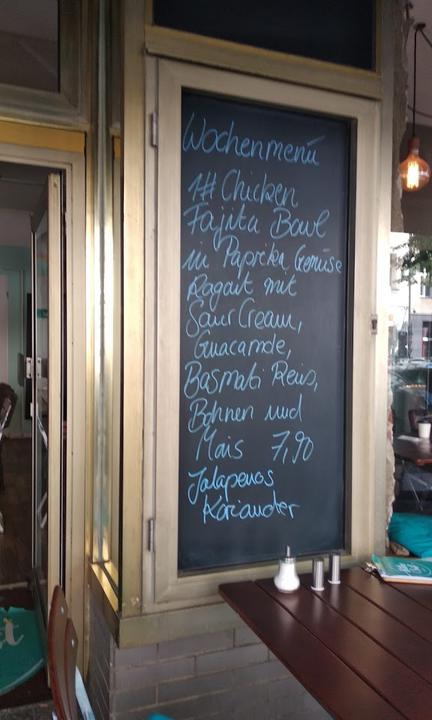 Wochenmenü
1# Chicken
Fajita Bowl
in Paprika Gemüse
Ragout mit
Sour Cream,
Guacamole,
Basmati Reis,
Bohnen und
Mais 7,90
Jalapenos
Koriander